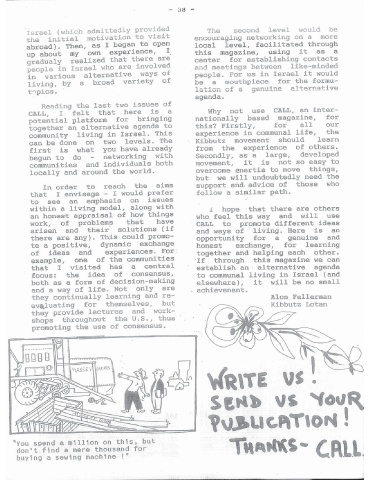 - 38 -
Israel (which admittedly provided
the initial motivation to visit
abroad). Then, as I began to open
up about my own experience, I
gradually realised that there are
people in Israel who are involved
in various alternative ways of
living, by a broad variety of
topics.
Reading the last two issues of
CALL, I felt that here is a
potential platform for bringing
together an alternative agenda to
community living in Israel. This
can be done on two levels. The
first is what you have already
begun to do - networking with
communities and individuals both
locally and around the world.
In order to reach the aims
that I envisage - I would prefer
to see an emphasis on issues
within a living model, along with
an honest appraisal of how things
work, of problems that have
arisen and their solutions (if
there are any). This could promo-
te a positive, dynamic exchange
of ideas and experiences. For
example, one of the communities
that I visited has a central
focus: the idea of consensus,
both as a form of decision-making
and a way of life. Not only are
they continually learning and re-
evaluating for themselves, but
they provide lectures and work-
shops throughout the U.S., thus
promoting the use of consensus.
"You spend a million on this, but
don't find a mere thousand for
buying a sewing machine !"
The second level would be
encouraging networking on a more
local level, facilitated through
this magazine, using it as a
center for establishing contacts
and meetings between like-minded
people. For us in Israel it would
be a mouthpiece for the formu-
lation of a genuine alternative
agenda.
Why not use CALL, an inter-
nationally based magazine, for
this? Firstly, for all our
experience in communal life, the
Kibbutz movement should learn
from the experience of others.
Secondly, as a large, developed
movement, it is not so easy to
overcome inertia to move things,
but we will undoubtedly need the
support and advice of those who
follow a similar path.
I hope that there are others
who feel this way and will use
CALL to promote different ideas
and ways of living. Here is an
opportunity for a genuine and
honest exchange, for learning
together and helping each other.
If through this magazine we can
establish an alternative agenda
to communal living in Israel (and
elsewhere), it will be no small
achievement.
Alon Fallerman
Kibbutz Lotan
WRITE US!
SEND US YOUR
PUBLICATION!
THANKS- CALL